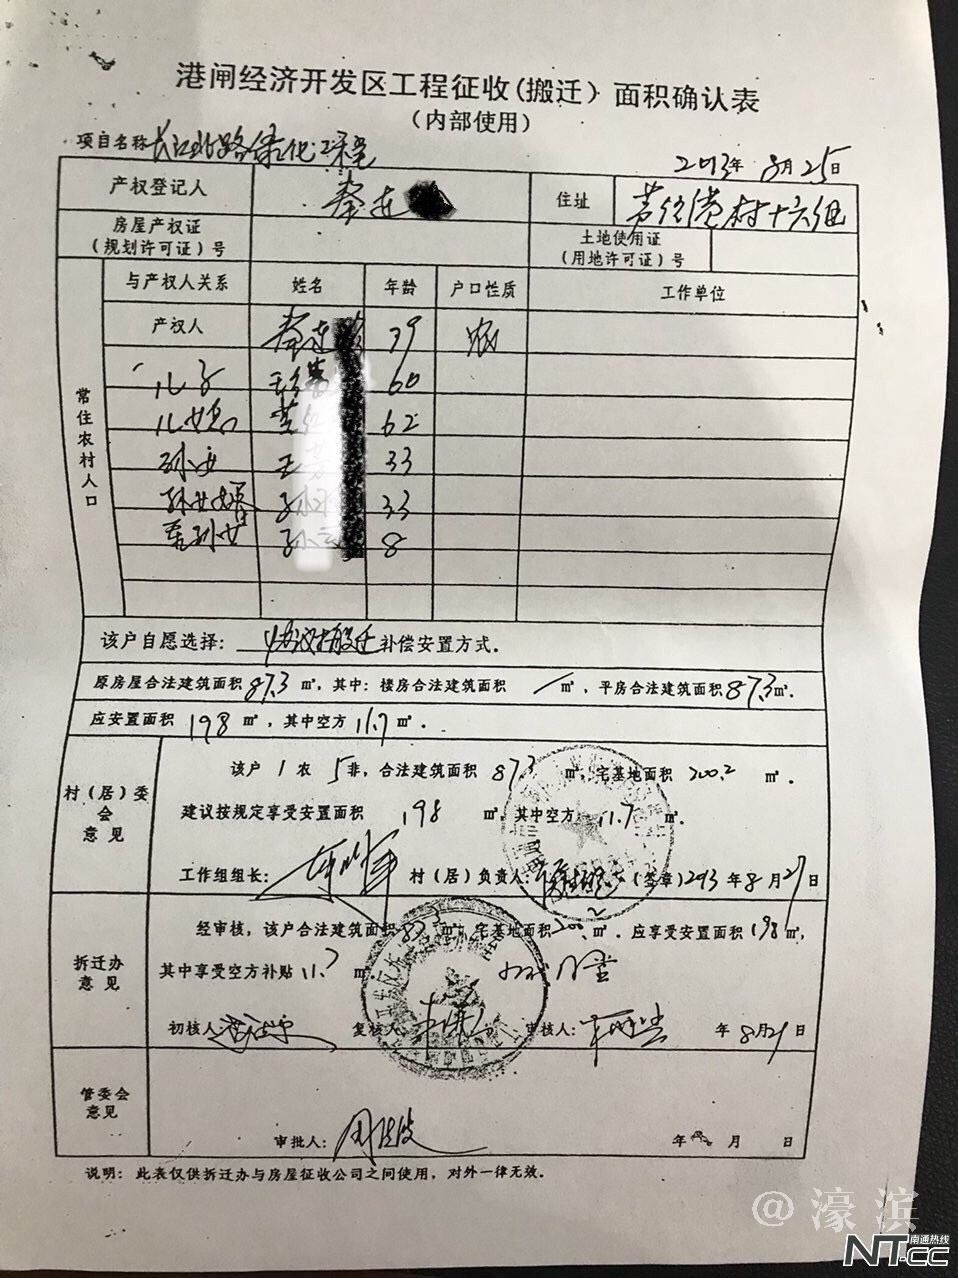 港闸经济开发区工程征收(搬迁)面积确认表
(内部使用)
项目名称 长江北路绿化工程
2013年8月25日
产权登记人 秦连 住址 芦泾港村十六组
房屋产权证
(规划许可证)号
土地使用证
(用地许可证)号
常住农村人口
与产权人关系 姓名 年龄 户口性质 工作单位
产权人 秦连 39 农
儿子 王 60
儿媳 62
孙女 王 33
孙女婿 孙 33
重孙女 孙云 8
该户自愿选择: 协议搬迁 补偿安置方式.
原房屋合法建筑面积87.3㎡,其中:楼房合法建筑面积 / ㎡,平房合法建筑面积87.3㎡.
应安置面积 198 ㎡,其中空方 11.7 ㎡.
村(居)委
会
意见
该户 1 农 5 非,合法建筑面积 87.3 ㎡,宅基地面积 200.2 ㎡.
建议按规定享受安置面积 198 ㎡,其中空方 11.7 ㎡.
工作组组长: 村(居)负责人: (签章)2013年8月27日
拆迁办
意见
经审核,该户合法建筑面积87.3㎡,宅基地面积200.2㎡.应享受安置面积198㎡,
其中享受空方补贴 11.7 ㎡.
初核人: 复核人: 审核人: 年8月29日
管委会
意见
审批人: 年 月 日
说明:此表仅供拆迁办与房屋征收公司之间使用,对外一律无效。
@濠滨
南通热线
NT.CC